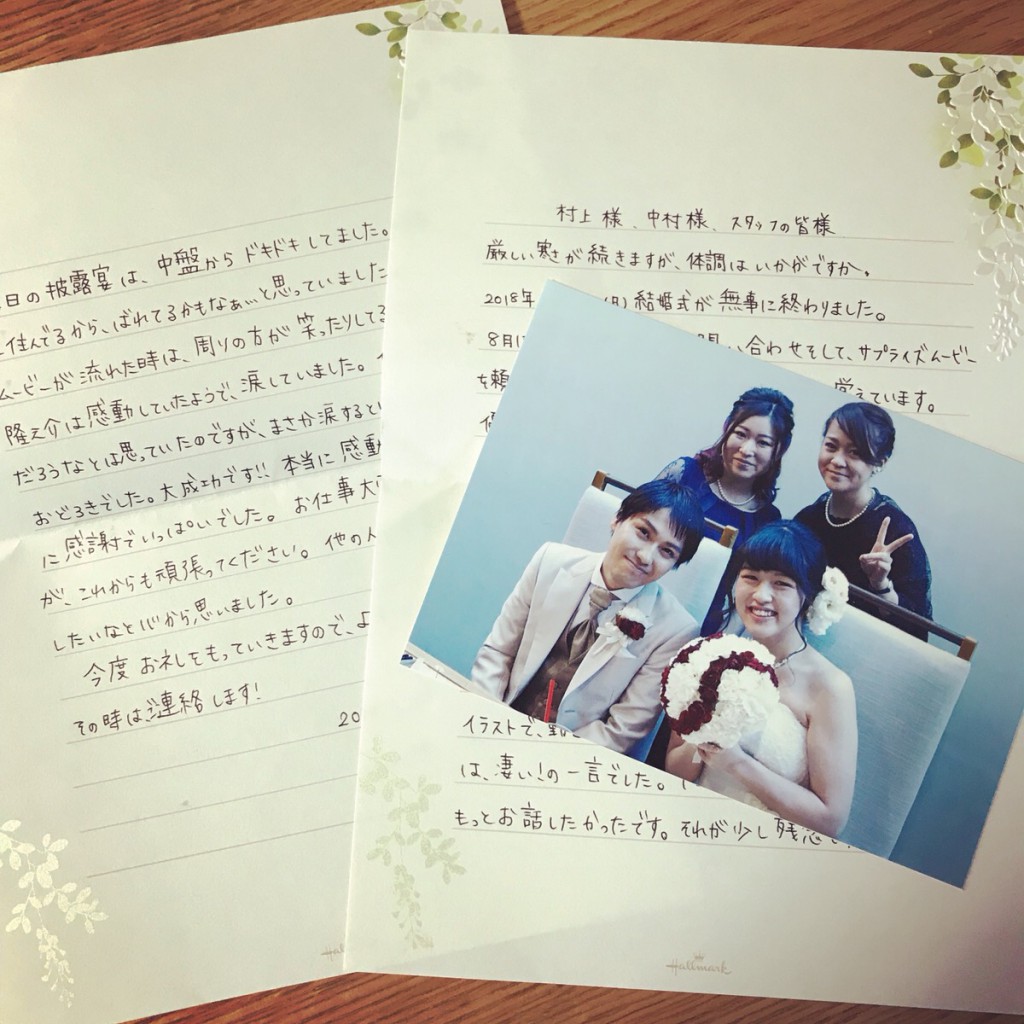 村上様、中村様、スタッフの皆様
厳しい寒さが続きますが、体調はいかがですか。
2018年 (日)結婚式が無事に終わりました。
8月に い合わせそして、サプライズムービー
を頼 覚えています。
イラストで、動
は、凄い!の一言でした。
もっとお話したかったです。それが少し残念で
日の披露宴は、中盤からドキドキしてました。
住んでるから、ばれてるかもなぁ…と思っていました
ムービーが流れた時は、周りの方が笑ったりしてる
隆之介は感動していたようで、涙していました。
だろうなとは思っていたのですが、まさか涙すると
おどろきでした。大成功です!!本当に感動
に感謝でいっぱいでした。お仕事大
が、これからも頑張ってください。他の人
したいなと心から思いました。
今度お礼をもっていきますので、よ
その時は連絡します!
20
Hallmark
Hall